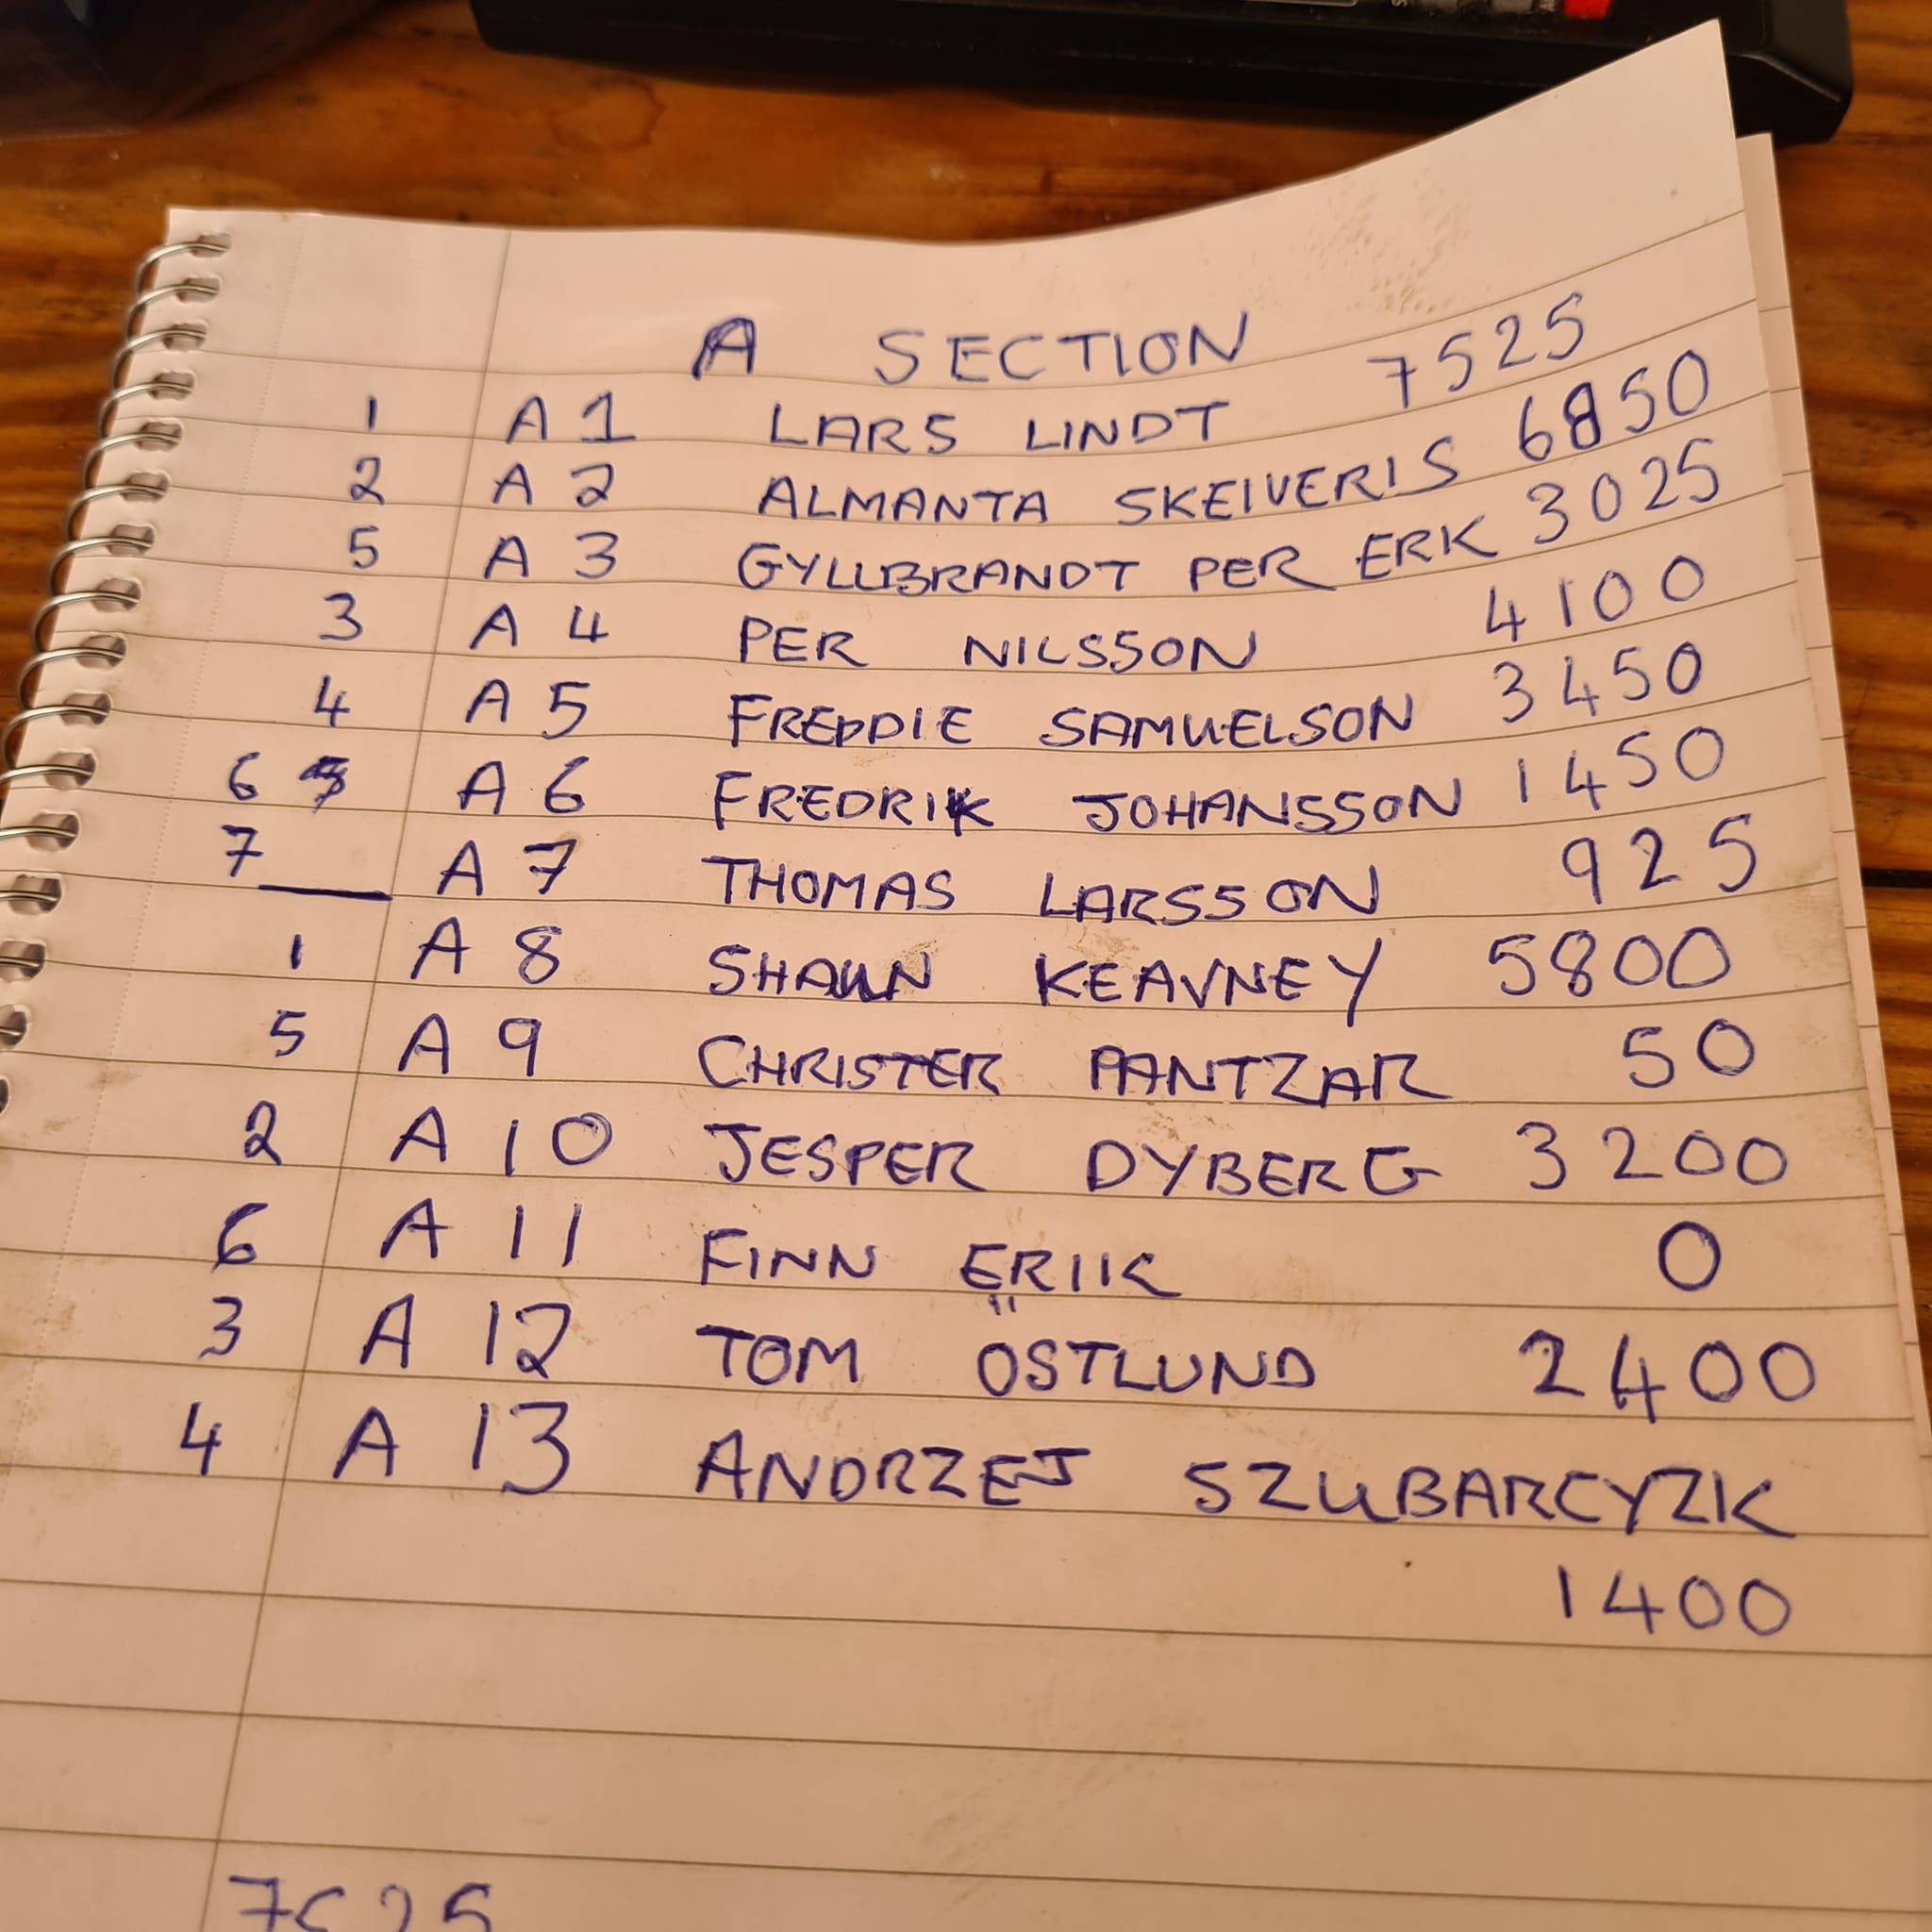 A SECTION
1 A1 LARS LINDT 7525
2 A2 ALMANTA SKEIVERIS 6850
5 A3 GYLLBRANDT PER ERK 3025
3 A4 PER NILSSON 4100
4 A5 FREDDIE SAMUELSON 3450
6 A6 FREDRIK JOHANSSON 1450
7 A7 THOMAS LARSSON 925
1 A8 SHAUN KEAVNEY 5800
5 A9 CHRISTER PANTZAR 50
2 A10 JESPER DYBERG 3200
6 A11 FINN ERIIK 0
3 A12 TOM ÖSTLUND 2400
4 A13 ANDRZEJ SZUBARCYZK
1400